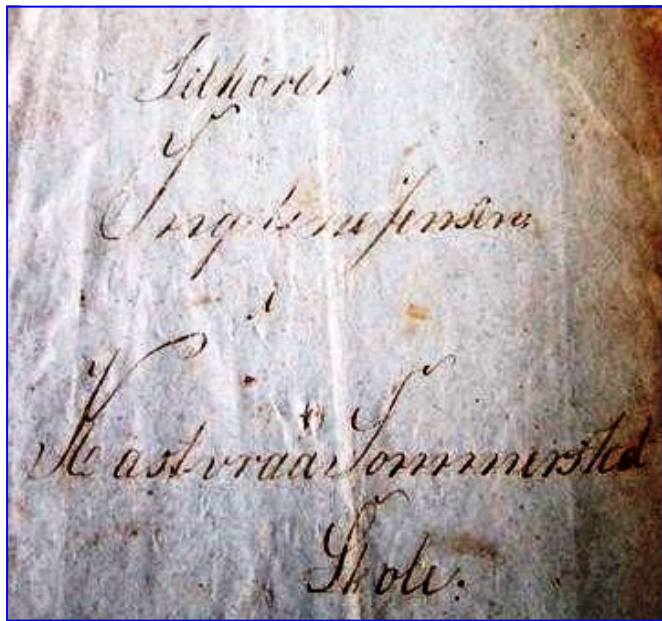 Tilhører
Ingeline Jensen
i
Kastvraa Sommersted
Skole.